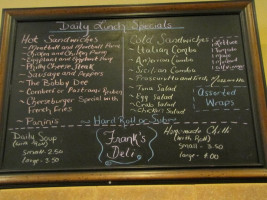 Daily Lunch Specials
Hot Sandwiches
- Meatball and Meatball Parm
- Chicken and Chicken Parm
- Eggplant and Eggplant Parm
- Philly Cheese Steak
- Sausage and Peppers
- The Bobby Dee
- Corned or Pastrami Reuben
- Cheeseburger Special with
French Fries
- Paninis
Cold Sandwiches
- Italian Combo
- American Combo
- Sicilian Combo
- Prosciutto and Fresh
- Tuna Salad
- Egg Salad
- Crab Salad
- Chicken Salad
Lettuce
Assorted
Wraps
Hard Roll or Sub
Daily Soup
Small 2.50
large - 3.50
Frank's
Deli
Homemade Chili
(with Roll)
Small - 3.50
large - 4.00